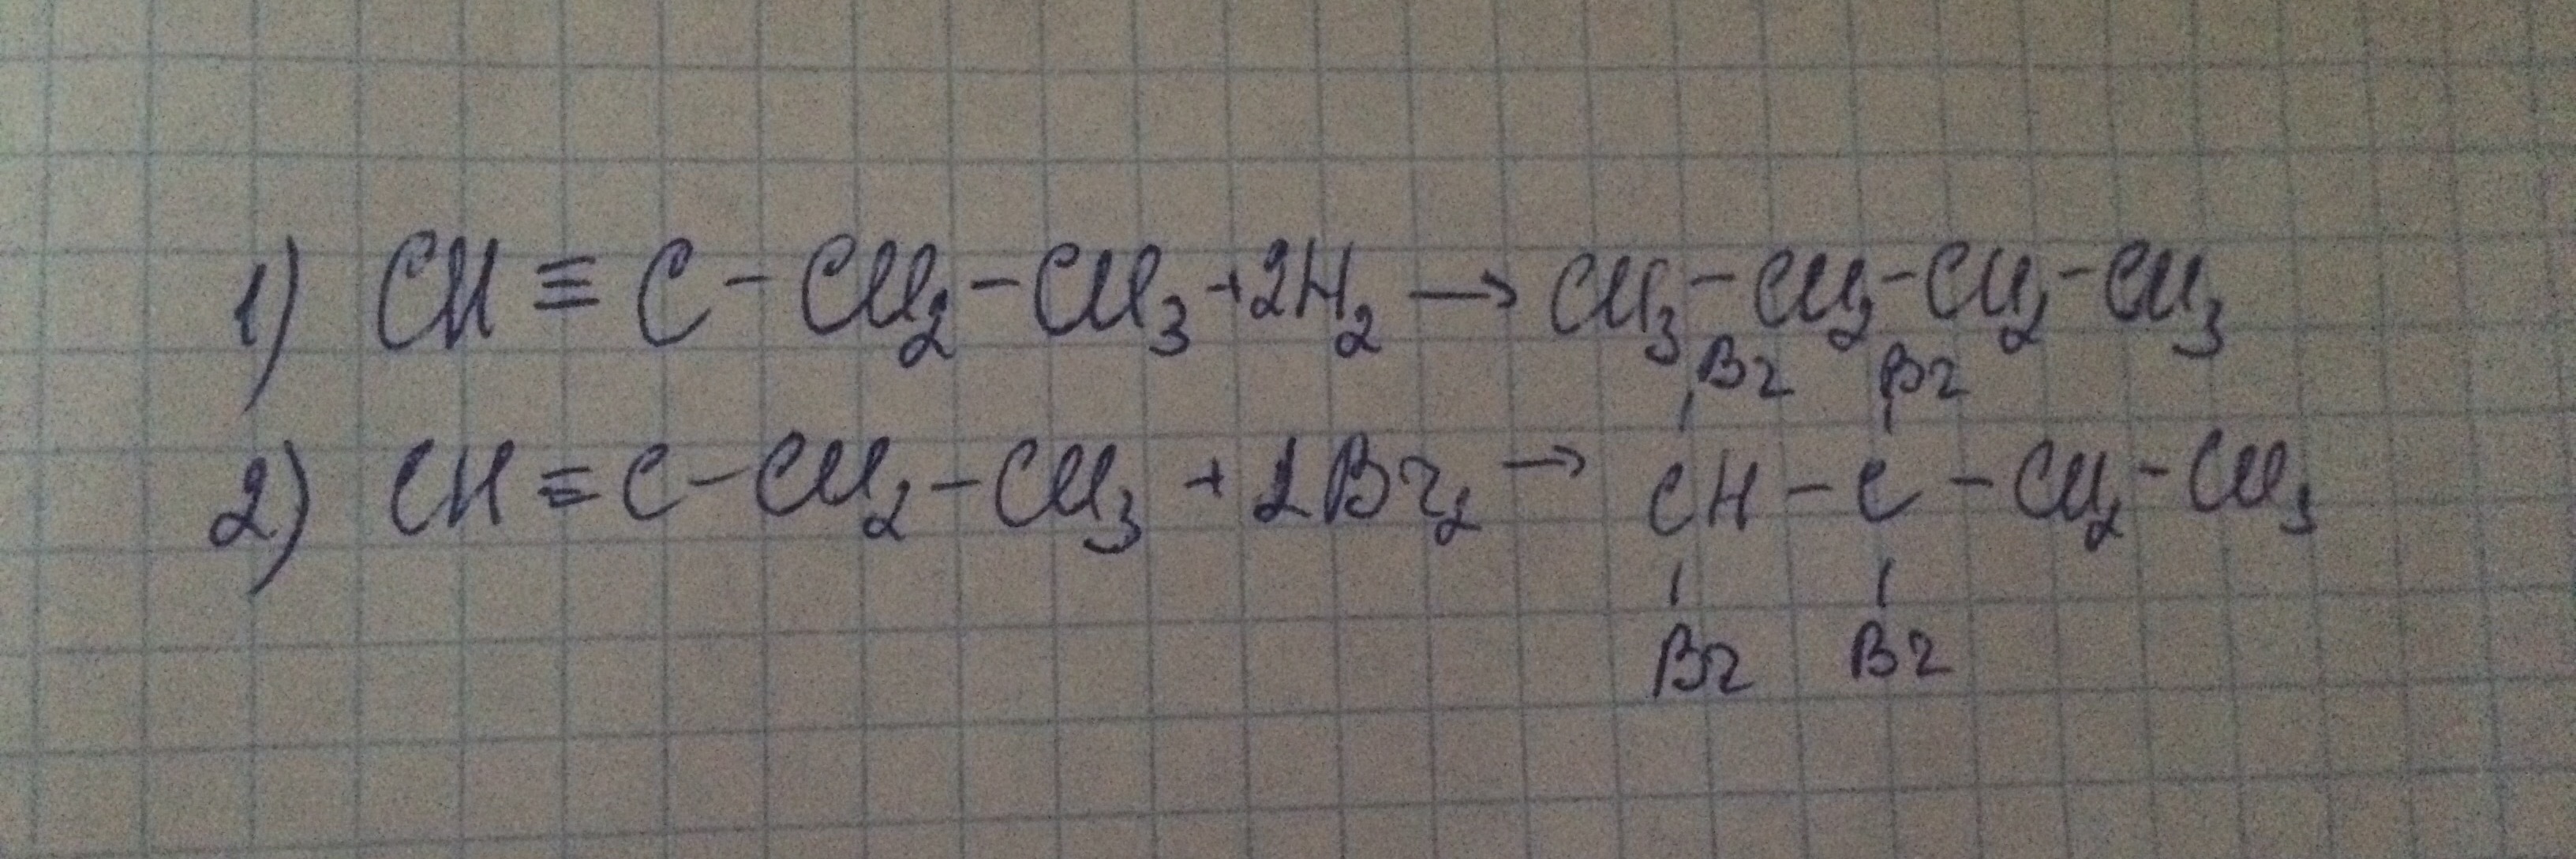 1) CH ≡ C - CH₂ - CH₃ + 2H₂ → CH₃ - CH₂ - CH₂ - CH₃
Br Br
2) CH ≡ C - CH₂ - CH₃ + 2Br₂ → CH - C - CH₂ - CH₃
Br Br